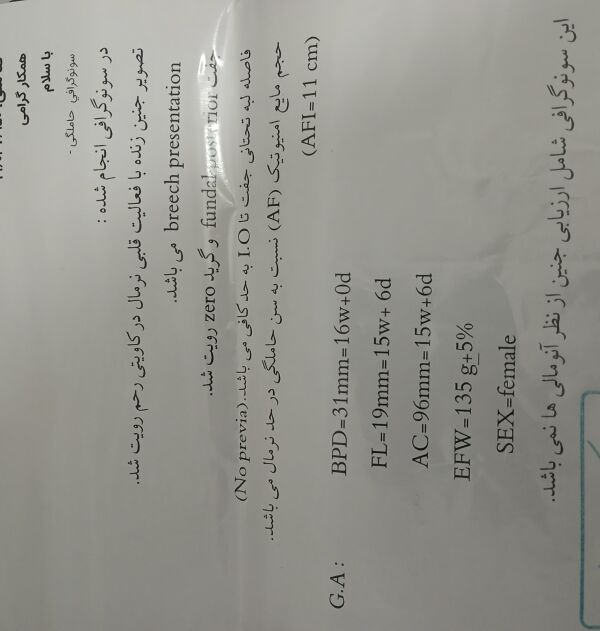 همکار گرامی
با سلام
سونوگرافی حاملگی -
در سونوگرافی انجام شده :
تصویر جنین زنده با فعالیت قلبی نرمال در کاویتی رحم رویت شد.
breech presentation می باشد.
جفت fundal posterior و گرید zero رویت شد.
فاصله لبه تحتانی جفت تا I.O به حد کافی می باشد.(No previa)
حجم مایع امنیوتیک (AF) نسبت به سن حاملگی در حد نرمال می باشد.
(AFI=11 cm)
G.A : BPD=31mm=16w+0d
FL=19mm=15w+ 6d
AC=96mm=15w+6d
EFW=135 g±5%
SEX=female
این سونوگرافی شامل ارزیابی جنین از نظر آنومالی ها نمی باشد.